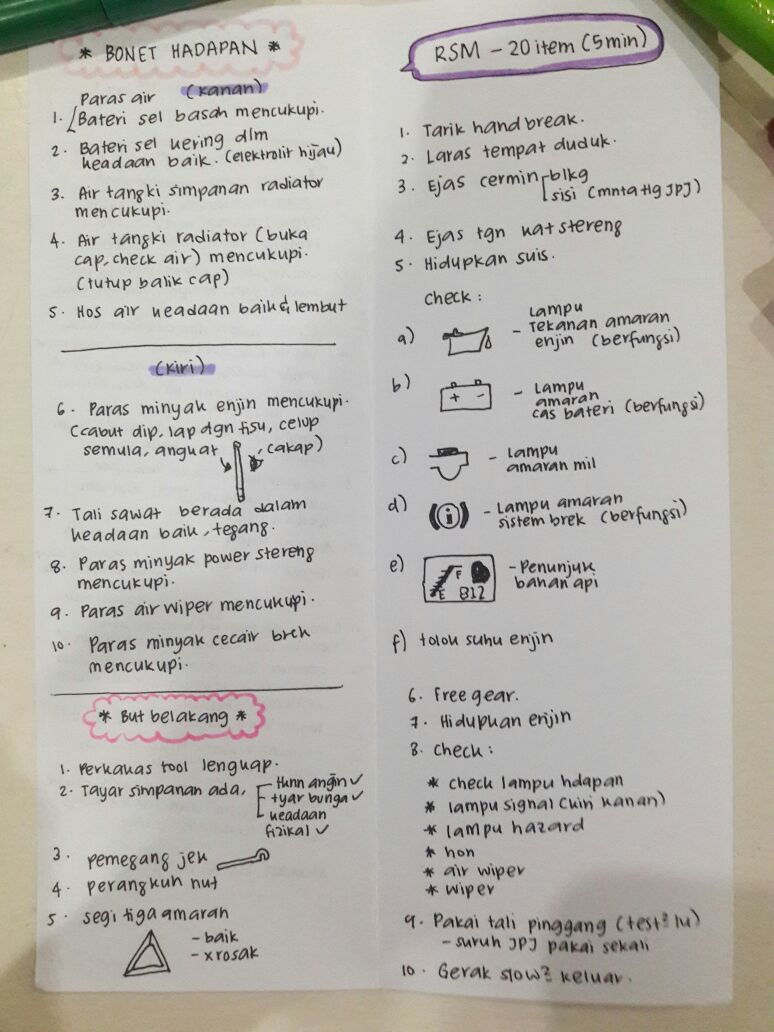 * BONET HADAPAN *
(kanan)
Paras air
1. Bateri sel basah mencukupi.
2. Bateri sel kering dlm
keadaan baik. (elektrolit hijau)
3. Air tangki simpanan radiator
mencukupi.
4. Air tangki radiator (buka
cap, check air) mencukupi.
(tutup balik cap)
5. Hos air keadaan baik & lembut
(kiri)
6. Paras minyak enjin mencukupi.
(cabut dip, lap dgn tisu, celup
semula, angkat, cakap)
7. Tali sawat berada dalam
keadaan baik, tegang.
8. Paras minyak power stereng
mencukupi.
9. Paras air wiper mencukupi.
10. Paras minyak cecair brek
mencukupi.
* But belakang *
1. Perkakas tool lengkap.
2. Tayar simpanan ada, tknn angin ✓
tyar bunga ✓
keadaan
fizikal ✓
3. pemegang jek
4. perangkuh nut
5. segi tiga amaran
- baik
- x rosak
RSM - 20 item (5 min)
1. Tarik handbreak.
2. Laras tempat duduk.
3. Ejas cermin blkg
sisi (mnta tlg JPJ)
4. Ejas tgn kat stereng
5. Hidupkan suis.
check :
a) - Lampu
Tekanan amaran
enjin (berfungsi)
b) + - - Lampu
amaran
cas bateri (berfungsi)
c) - Lampu
amaran mil
d) (i) - Lampu amaran
sistem brek (berfungsi)
e) F E 812 - Penunjuk
bahan api
f) tolok suhu enjin
6. Free gear.
7. Hidupkan enjin
8. check :
* check lampu hdapan
* lampu signal (kiri kanan)
* lampu hazard
* hon
* air wiper
* wiper
9. Pakai tali pinggang (test² lu)
- suruh JPJ pakai sekali
10. Gerak slow² keluar.